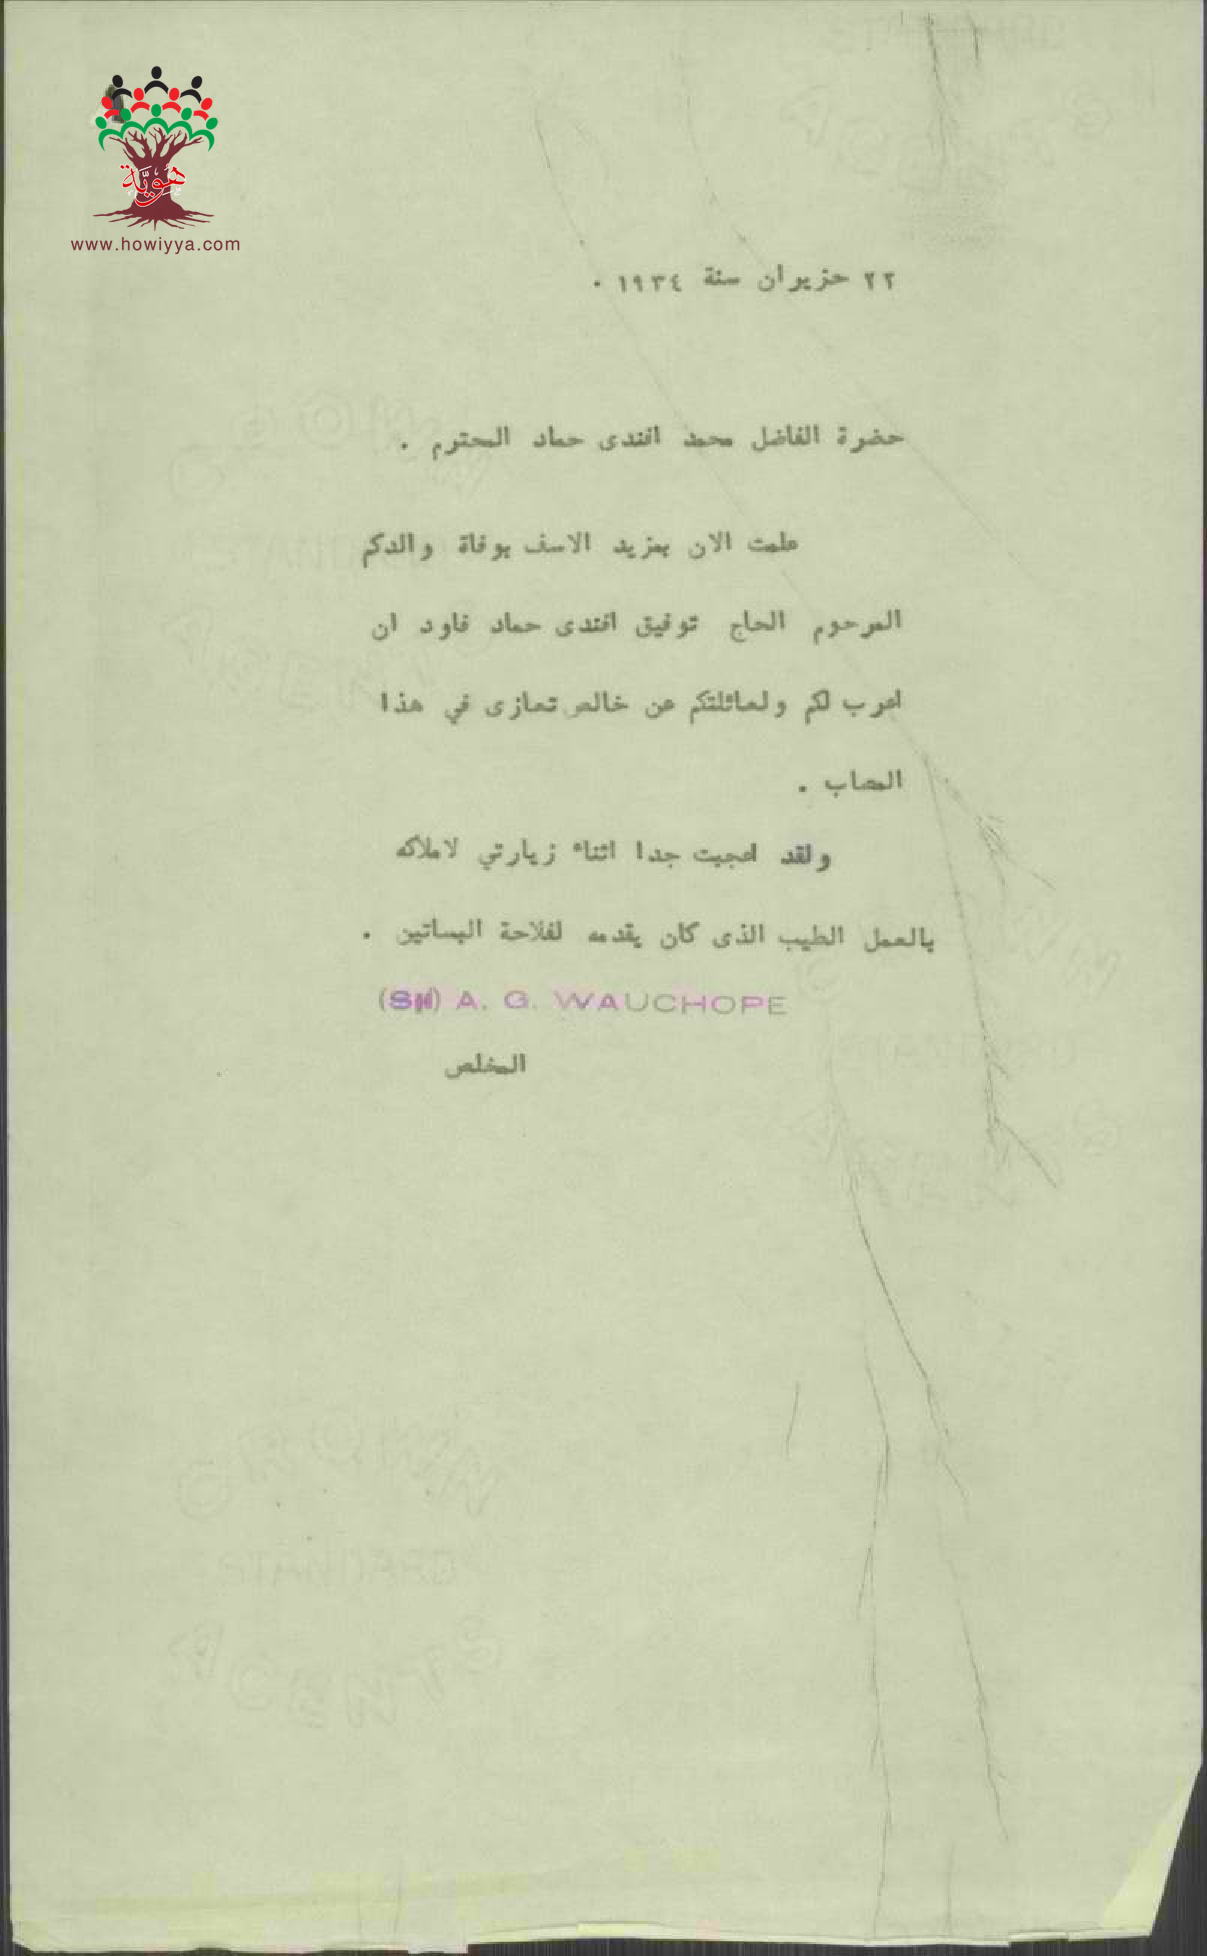 هوية
www.howiyya.com
٢٢ حزيران سنة ١٩٣٤ .
حضرة الفاضل محمد افندى حماد المحترم .
علمت الان بمزيد الاسف بوفاة والدكم
المرحوم الحاج توفيق افندى حماد فاود ان
اعرب لكم ولعائلتكم عن خالص تعازى في هذا
المصاب .
ولقد اعجبت جدا اثناء زيارتي لاملاكه
بالعمل الطيب الذى كان يقدمه لفلاحة البساتين .
A. G. WAUCHOPE
المخلص
CROWN
AGENTS